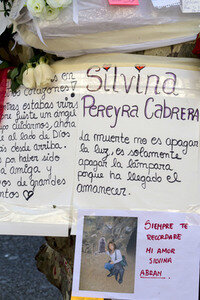 en
corazones?
estabas viva
fuiste un ángel
cuidarnos, ahora
al lado de Dios
desde arriba.
ha sido
amiga y
de grandes
entos
Silvina
Pereyra Cabrera
La muerte no es apagar
la luz, es solamente
apagar la lámpara
porque ha llegado el
amanecer.
SIEMPRE TE
RECORDARE
MI AMOR
SILVINA
ABRAN.